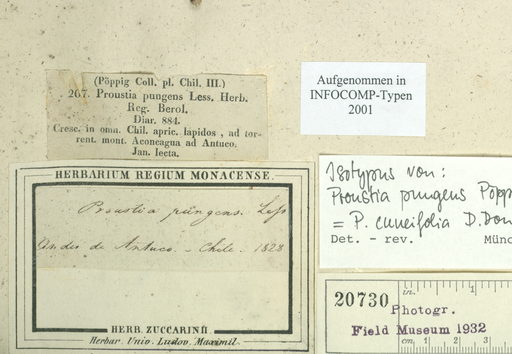 (Pöppig Coll. pl. Chil. III.)
267. Proustia pungens Less. Herb.
Reg. Berol.
Diar. 884.
Cresc. in omn. Chil. apric. lapidos, ad tor-
rent. mont. Aconcagua ad Antuco.
Jan. lecta.
Aufgenommen in
INFOCOMP-Typen
2001
HERBARIUM REGIUM MONACENSE.
Proustia pungens. Less
Andes de Antuco. - Chile - 1828
HERB. ZUCCARINII
Herbar. Univ. Ludov. Maximil.
Isotypus von:
Proustia pungens Pöpp
= P. cuneifolia D. Don
Det. - rev. Münc
20730
in. 1
Photogr.
Field Museum 1932
cm. 1 2 3